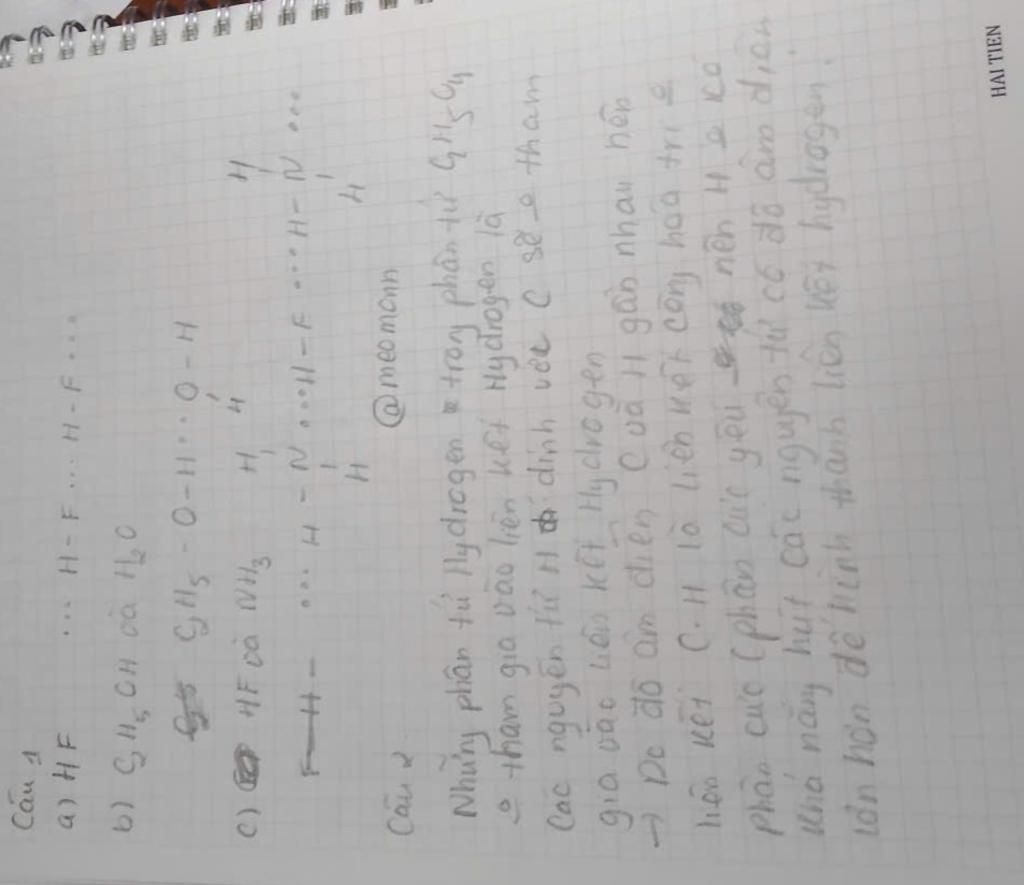 Câu 1
a) HF ... H-F ... H-F ... H-F ...
b) C₂H₅OH và H₂O
C₂H₅ - O-H ... O-H
H
c) HF và NH₃
H H
F-H- ... H - N ... H-F ... H-N ...
H H
@meomonn
Câu 2
Những phân tử Hydrogen trong phân tử
tham gia vào liên kết Hydrogen là
Các nguyên tử H dính với C sẽ tham
gia vào liên kết Hydrogen
→ Do độ âm điện C và H gần nhau nên
liên kết C-H là liên kết cộng hóa trị
phân cực (phân cực yếu nên H có
khả năng hút các nguyên tử có độ âm điện
lớn hơn để hình thành liên kết hydrogen.
HAI TIEN